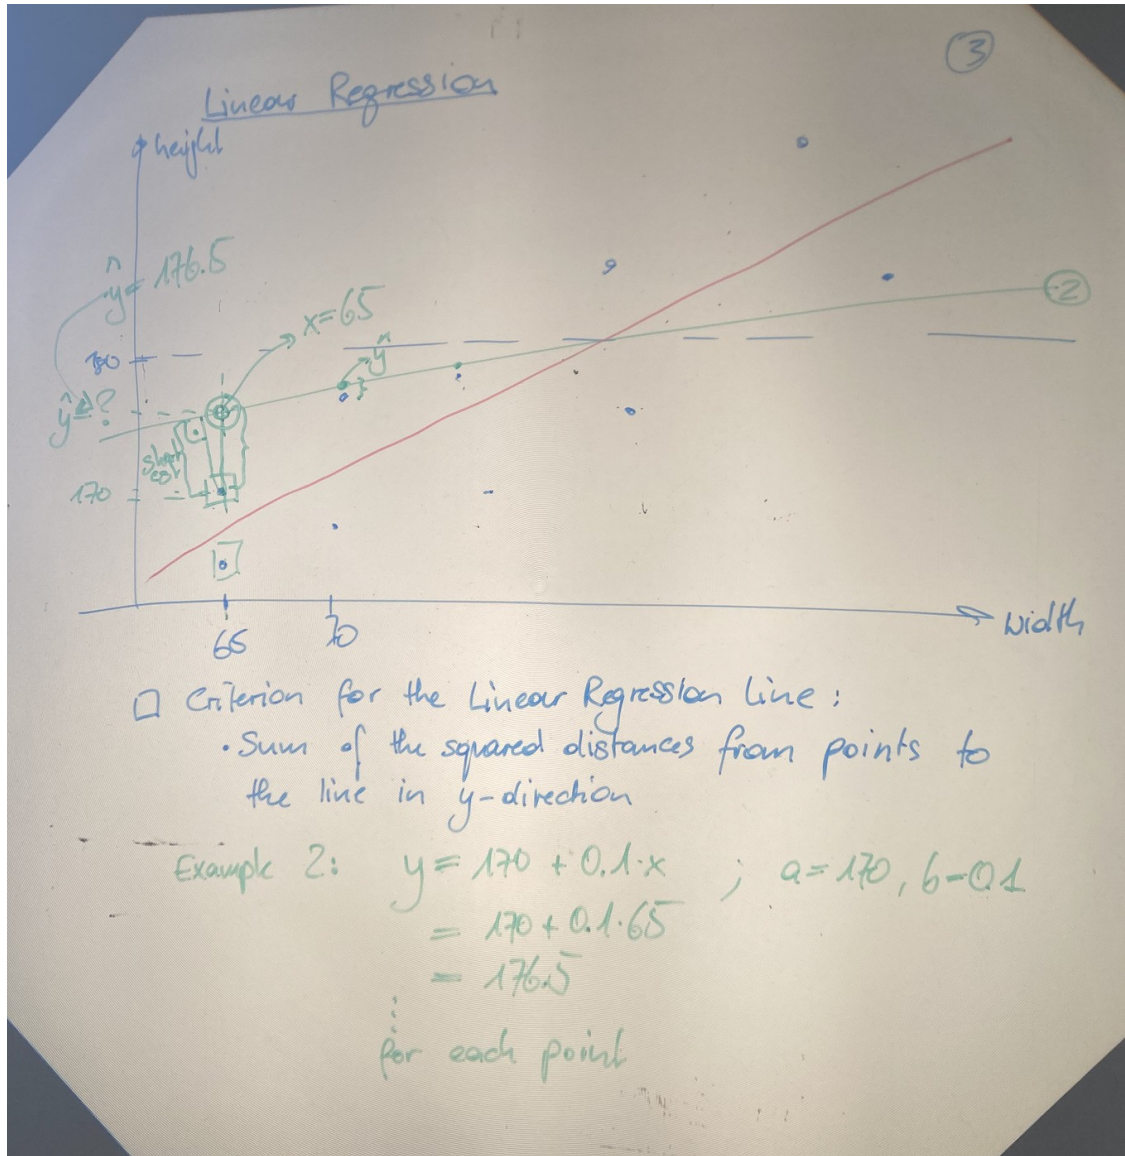 3
Linear Regression
height
ŷ = 176.5
x=65
180
ŷ
2
ŷ = ?
170
65
70
width
□ Criterion for the Linear Regression Line:
• Sum of the squared distances from points to
the line in y-direction
Example 2: y = 170 + 0.1·x ; a = 170, b = 0.1
= 170 + 0.1·65
= 176.5
⋮
for each point